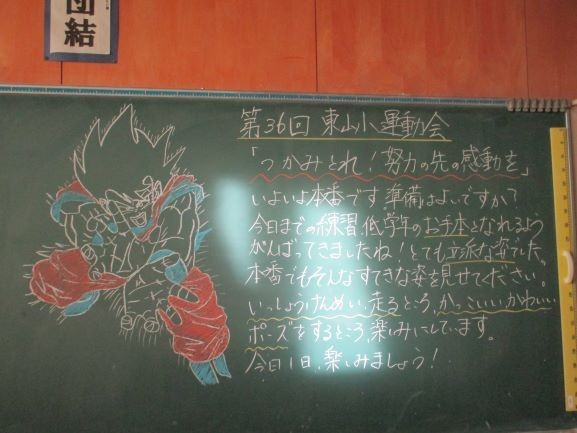 団結
第36回 東山小運動会
「つかみとれ!努力の先の感動を」
いよいよ本番です 準備はよいですか?
今日までの練習、低学年のお手本となれるよう
がんばってきましたね!とても立派な姿でした。
本番でもそんなすてきな姿を見せてください。
いっしょうけんめい、走るところ、かっこいいかわいい
ポーズをするところ、楽しみにしています。
今日1日、楽しみましょう!